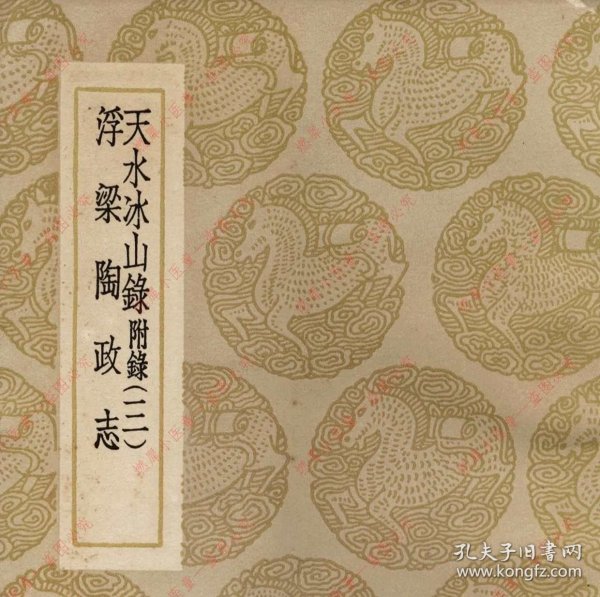 天水冰山錄附錄(三)
浮梁陶政志
孔夫子旧书网
www.kongfz.com